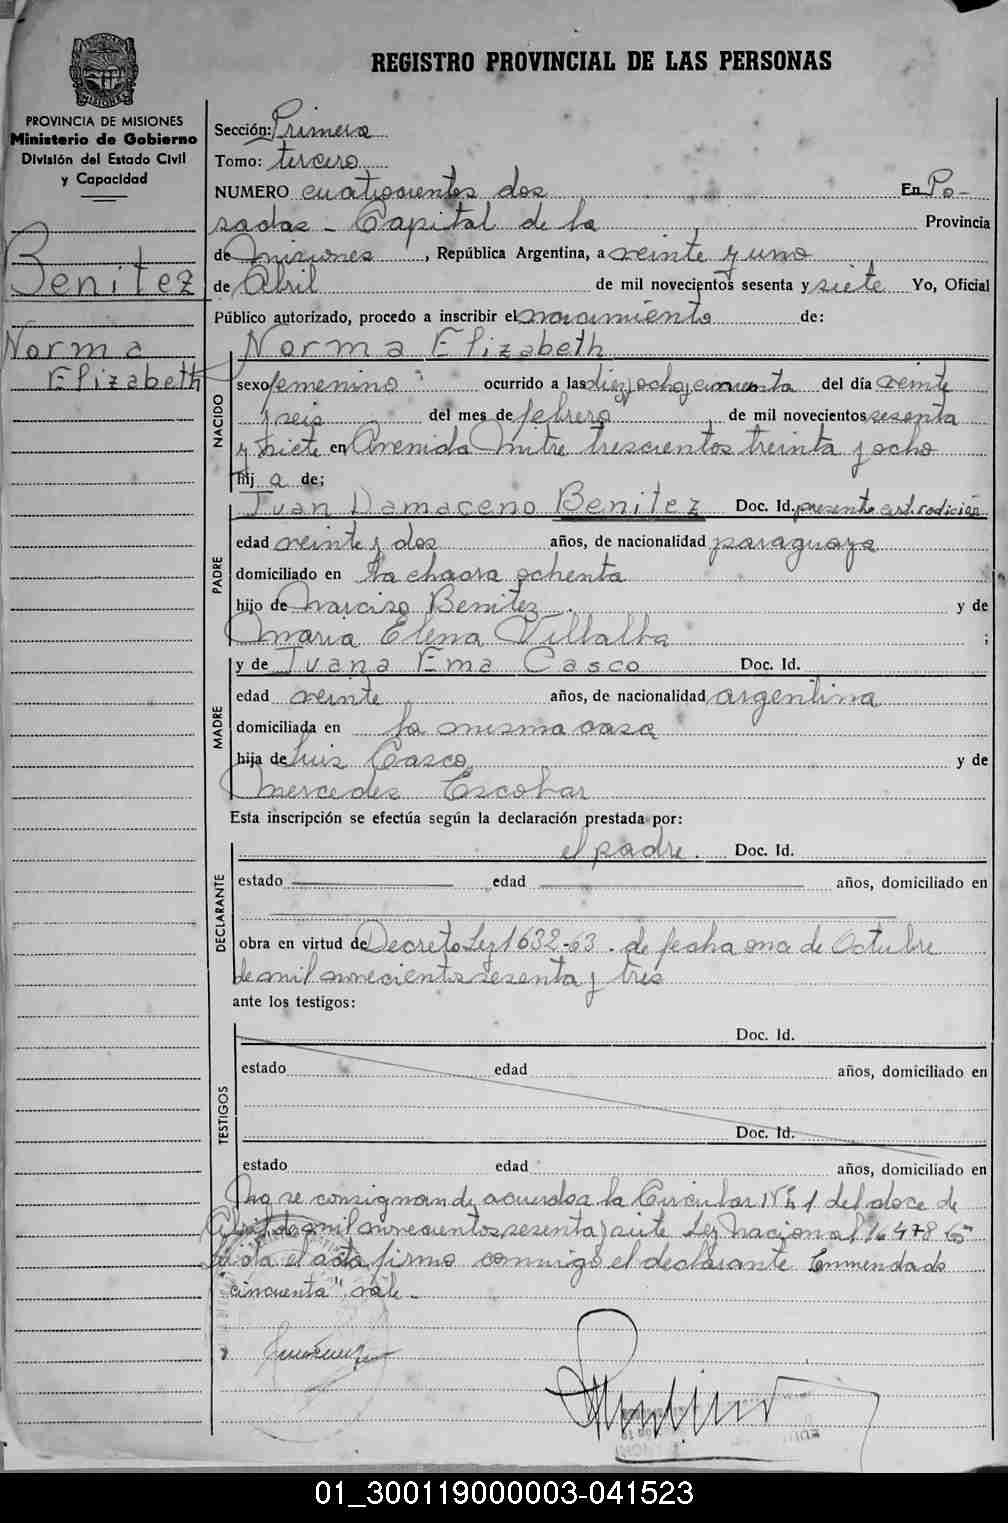 REGISTRO PROVINCIAL DE LAS PERSONAS
PROVINCIA DE MISIONES
Ministerio de Gobierno
División del Estado Civil
y Capacidad
Benitez
Norma
Elizabeth
Sección: Primera
Tomo: tercero
NUMERO cuatrocientos dos En Po-
sadas - Capital de la Provincia
de Misiones, República Argentina, a veinte y uno
de Abril de mil novecientos sesenta y siete Yo, Oficial
Público autorizado, procedo a inscribir el nacimiento de:
Norma Elizabeth
NACIDO
sexo femenino ocurrido a las diez y ocho y cincuenta del día veinte
y seis del mes de febrero de mil novecientos sesenta
y siete en Avenida Mitre trescientos treinta y ocho
hij a de:
PADRE
Juan Damaceno Benitez Doc. Id. presenta cert. radición
edad veinte y dos años, de nacionalidad paraguaya
domiciliado en la chacra ochenta
hijo de Narciso Benitez y de
Maria Elena Villalba ;
MADRE
y de Juana Ema Casco Doc. Id.
edad veinte años, de nacionalidad argentina
domiciliada en la misma casa
hija de Luis Casco y de
Mercedes Escobar
Esta inscripción se efectúa según la declaración prestada por:
DECLARANTE
el padre. Doc. Id.
estado edad años, domiciliado en
obra en virtud de Decreto Ley 1632-63. de fecha once de Octubre
de mil novecientos sesenta y tres
ante los testigos:
TESTIGOS
Doc. Id.
estado edad años, domiciliado en
Doc. Id.
estado edad años, domiciliado en
No se consignan de acuerdo a la Circular Nº 1 del doce de
Abril de mil novecientos sesenta y siete Ley Nacional 16478-65
Leida el acta firma conmigo el declarante Enmendado
"cincuenta" vale.-
01_300119000003-041523